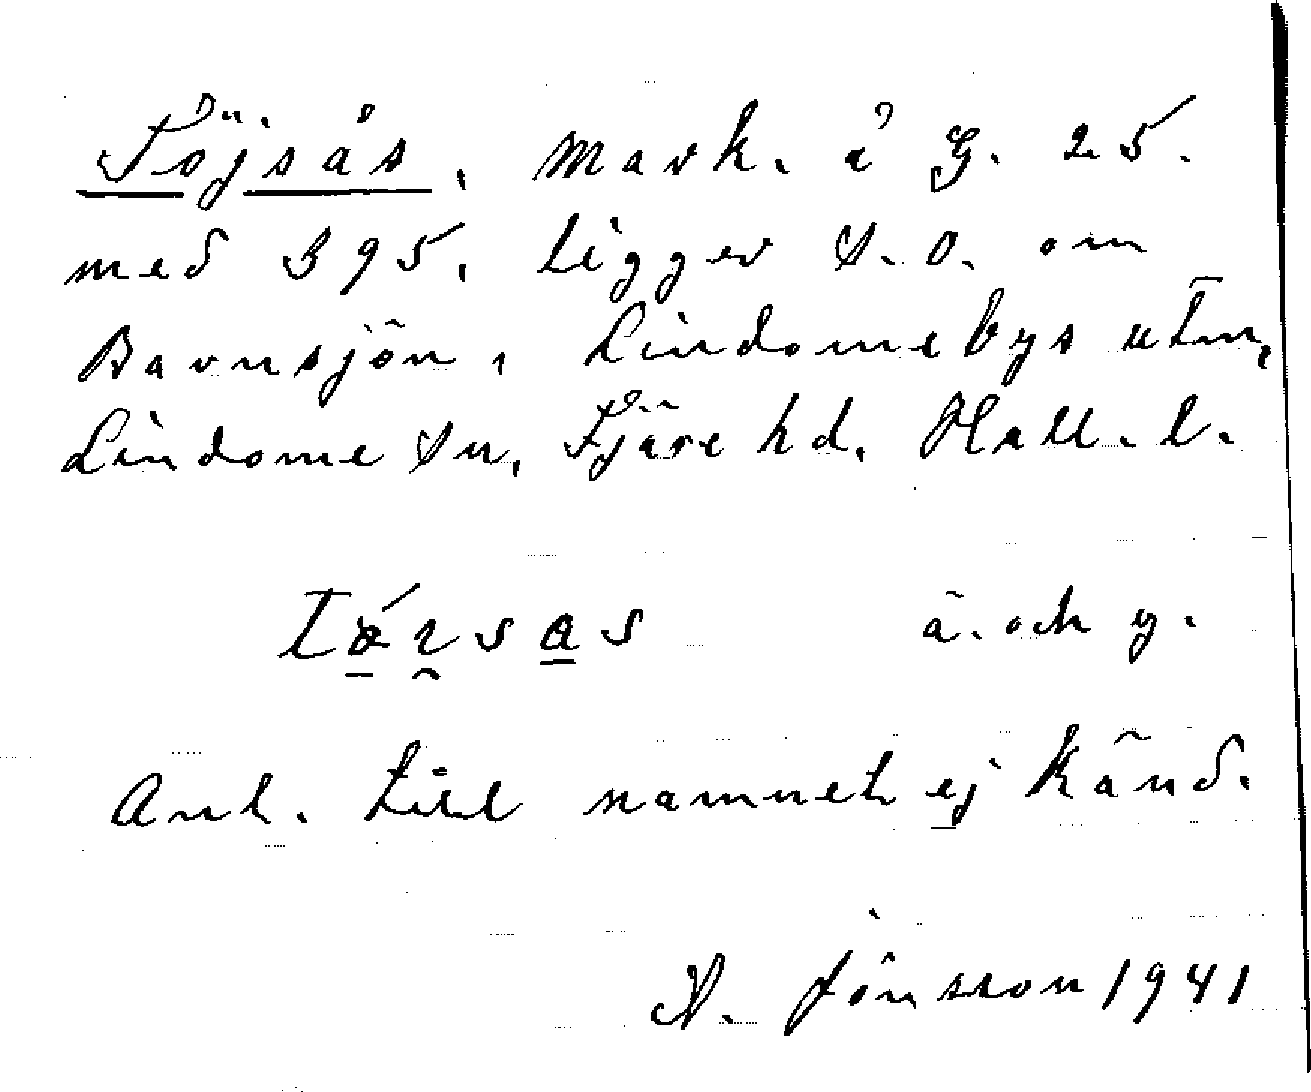 Töjsås, mark. i G. 25.
med 395, ligger S.O. om
Barnsjön, Lindomebys utm,
Lindome sn, Fjäre hd. Hall. l.
ä. och y.
Anl. till namnet ej känd.
N. Jönsson 1941